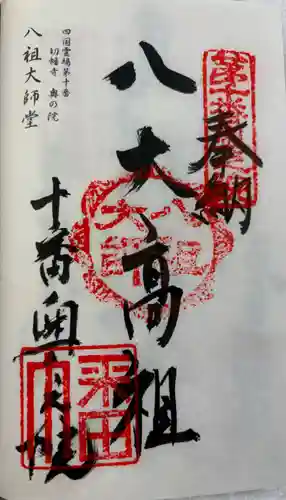 奉納
八大高祖
十番奥之院
四国霊場第十番
切幡寺 奥の院
八祖大師堂
八祖大師